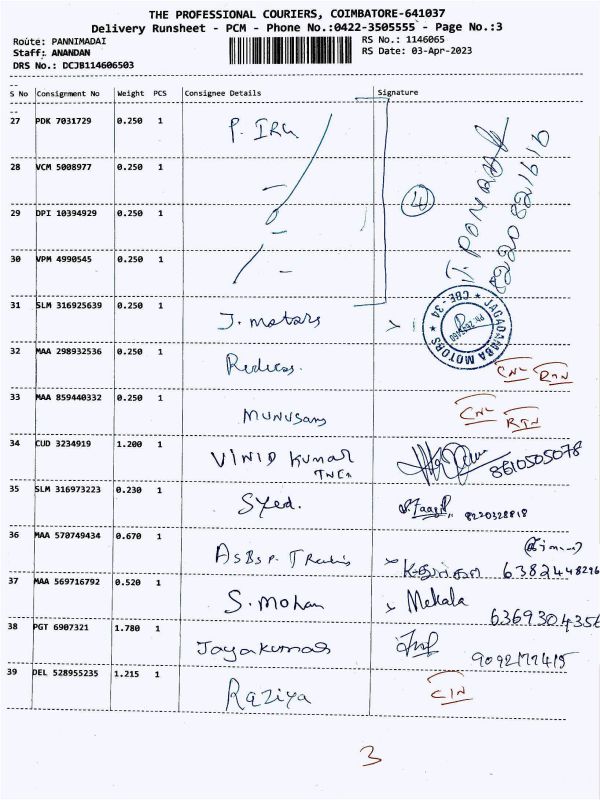 THE PROFESSIONAL COURIERS, COIMBATORE-641037
Delivery Runsheet - PCM - Phone No.:0422-3505555 - Page No.:3
Route: PANNIMADAI
RS No.: 1146065
Staff: ANANDAN
RS Date: 03-Apr-2023
DRS No.: DCJB114606503
S No Consignment No Weight PCS Consignee Details Signature
27 PDK 7031729 0.250 1 P. IRU
28 VCM 5008977 0.250 1
29 DPI 10394929 0.250 1
30 VPM 4990545 0.250 1
4
8220821610
31 SLM 316925639 0.250 1 J. motors
JAGADAMBA MOTORS ★ CBE - 34 ★
32 MAA 298932536 0.250 1 RTN
33 MAA 859440332 0.250 1 Munusamy RTN
34 CUD 3234919 1.200 1 VINID Kumar 8610505078
35 SLM 316973223 0.230 1 Syed. 8220328818
36 MAA 570749434 0.670 1 6382448296
37 MAA 569716792 0.520 1 S. Mohan Mekala 6369304356
38 PGT 6907321 1.780 1 Jayakumar
39 DEL 528955235 1.215 1 Raziya
3